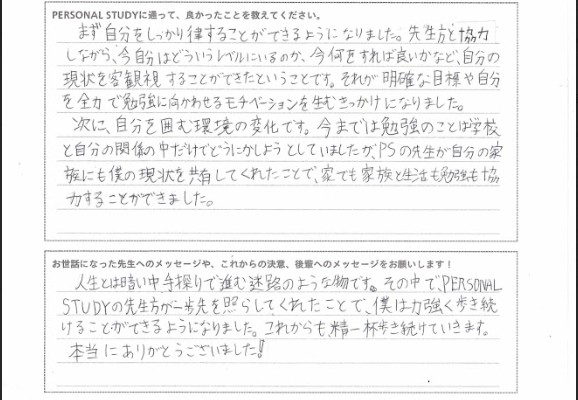 PERSONAL STUDYに通って、良かったことを教えてください。
まず自分をしっかり律することができるようになりました。先生方と協力
しながら、今自分はどういうレベルにいるのか、今何をすれば良いかなど、自分の
現状を客観視することができたということです。それが明確な目標や自分
を全力で勉強に向かわせるモチベーションを生むきっかけになりました。
次に、自分を囲む環境の変化です。今までは勉強のことは学校
と自分の関係の中だけでどうにかしようとしていましたが、PSの先生が自分の家
族にも僕の現状を共有してくれたことで、家でも家族と生活も勉強も協
力することができました。
お世話になった先生へのメッセージや、これからの決意、後輩へのメッセージをお願いします！
人生とは暗い中手探りで進む迷路のような物です。その中で、PERSONAL
STUDYの先生方が一歩先を照らしてくれたことで、僕は力強く歩き続
けることができるようになりました。これからも、精一杯歩き続けていきます。
本当にありがとうございました!!